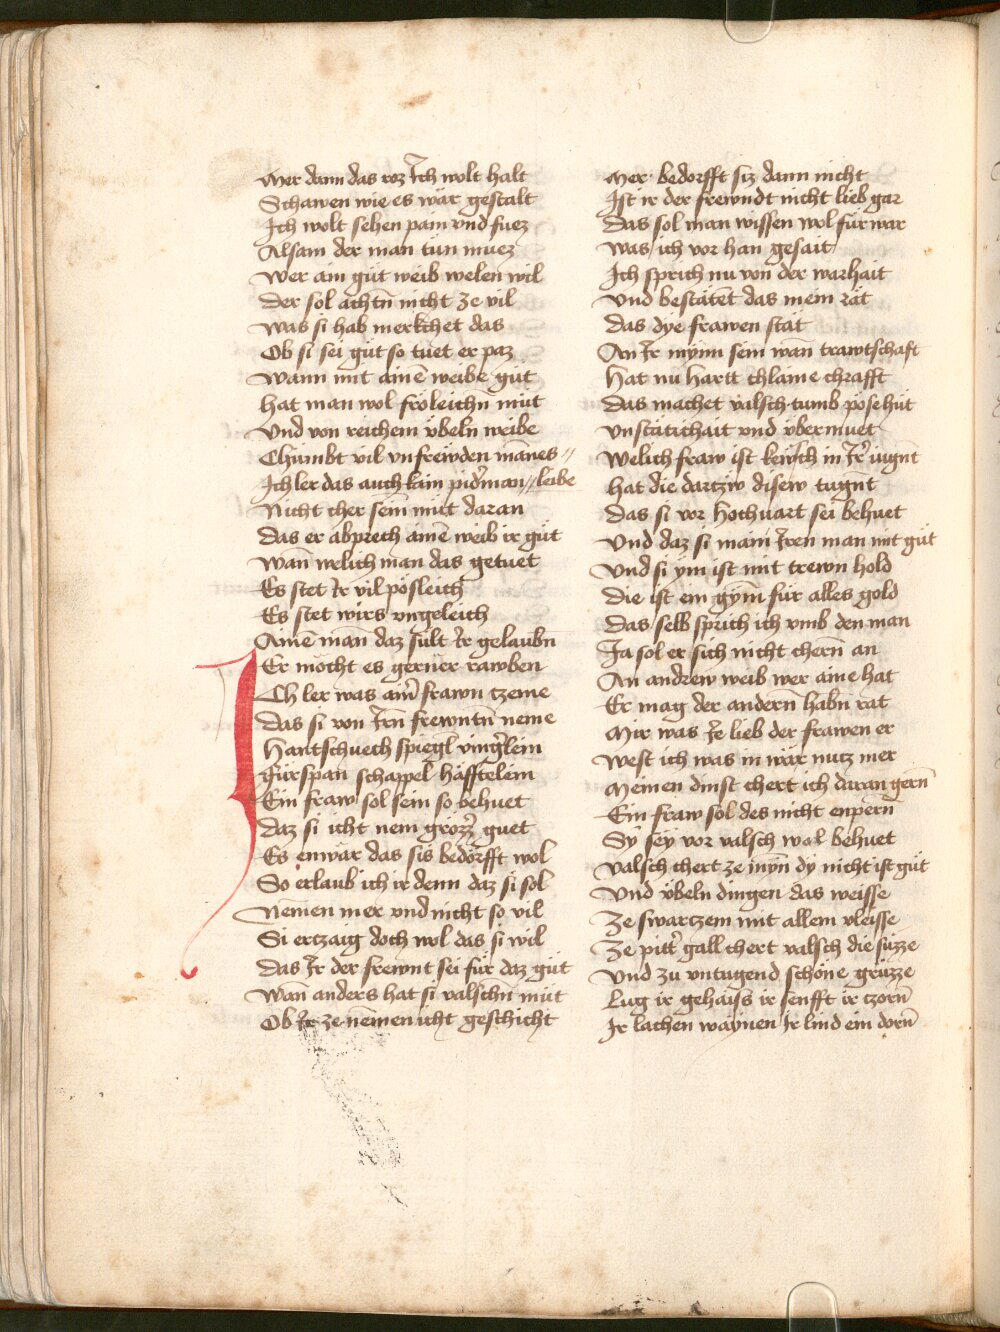 Mer dann das roz Ich wolt halt
Schawen wie es wär gestalt
Ich wolt sehen pain vnd fuez
Alsam der man tün muez
Wer am güt weib welen wil
Der sol achtn̄ nicht ze vil
Was si hab merkchet das
Ob si sei güt so tuet er paz
Wann mit ainē weibe güt
Hat man wol fröleichn̄ müt
Vnd von reichem vbeln weibe
Chumbt vil vnfrewden mānes //
Ich ler das auch kain pid'man // leibe
Nicht cher sein müt daran
Das er absprech ainē weib ir güt
Wan̄ welich man das getuet
Es stet Ir vil pösleich
Es stet wirs vngeleich
Ainē man daz sült Ir gelaubn
Er mocht es gerner rawben
Ich ler was ain̄ frawn tzeme
Das si von Irn̄ frewntn̄ neme
Hantschuech spiegl vingʼlein
Fürspan schappel häfftelein
Ein fraw sol sein so behuet
Daz si icht nem grözz' guet
Es enwär das sis bedörfft wol
So erlaub ich ir denn daz si sol
Nemen mer vnd nicht so vil
Si ertzaig doch wol das si wil
Das Ir der frewnt sei für daz güt
Wan̄ anders hat si valschn̄ müt
Ob Ir ze nemen icht geschicht
Mer bedorfft siz dann nicht
Ist ir der frewndt nicht lieb gar
Das sol man wissen wol für war
Was ich vor han gesait
Ich sprich nu von der warhait
Vnd bestätet das mein rät
Das dye frawen stät
An Ir mynn sein wan trawtschaft
Hat nu hartt chlaine chrafft
Das machet valsch tumb pöse hüt
Vnstätichait vnd vbermuet
Welich fraw ist kewsch in Ir' iugnt
Hat die dartzw disew tugn̄t
Das si vor hochuart sei behuet
Vnd daz si main Iren man mit güt
Vnd si ym ist mit trewn hold
Die ist ein gym̄ für alles gold
Das selb sprich ich vmb den man
Ja sol er sich nicht chern̄ an
An andrew weib wer aine hat
Er mag der andern̄ habn̄ rat
Mir was Ie lieb der frawen er
West ich was in wär nutz mer
Meinen dinst chert ich daran gern̄
Ein fraw sol des nicht enpern̄
Sy sey vor valsch wol behuet
Valsch chert ze myn̄ dy nicht ist güt
Vnd vbeln dingen das weisse
Ze swartzem mit allem vleisse
Ze pitt' gall chert valsch die süzze
Vnd zu vntugend schöne grüzze
Lug ir gehaiss ir senfft ir tzorn̄
Ir lachen waynen Ir lind ein dorn̄